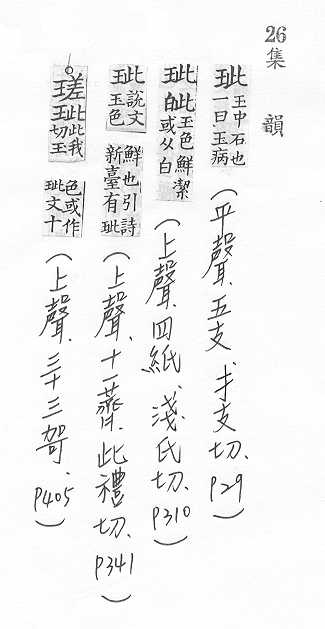 26
集韻
玼玉中石也一曰玉病(平聲、五支、才支切、P29)
玼皉玉色鮮潔或从白(上聲、四紙、淺氏切、P310)
玼說文玉色鮮也引詩新臺有玼(上聲、十一薺、此禮切、P341)
瑳玼此我切玉色或作玼文十(上聲、三十三哿、P405)